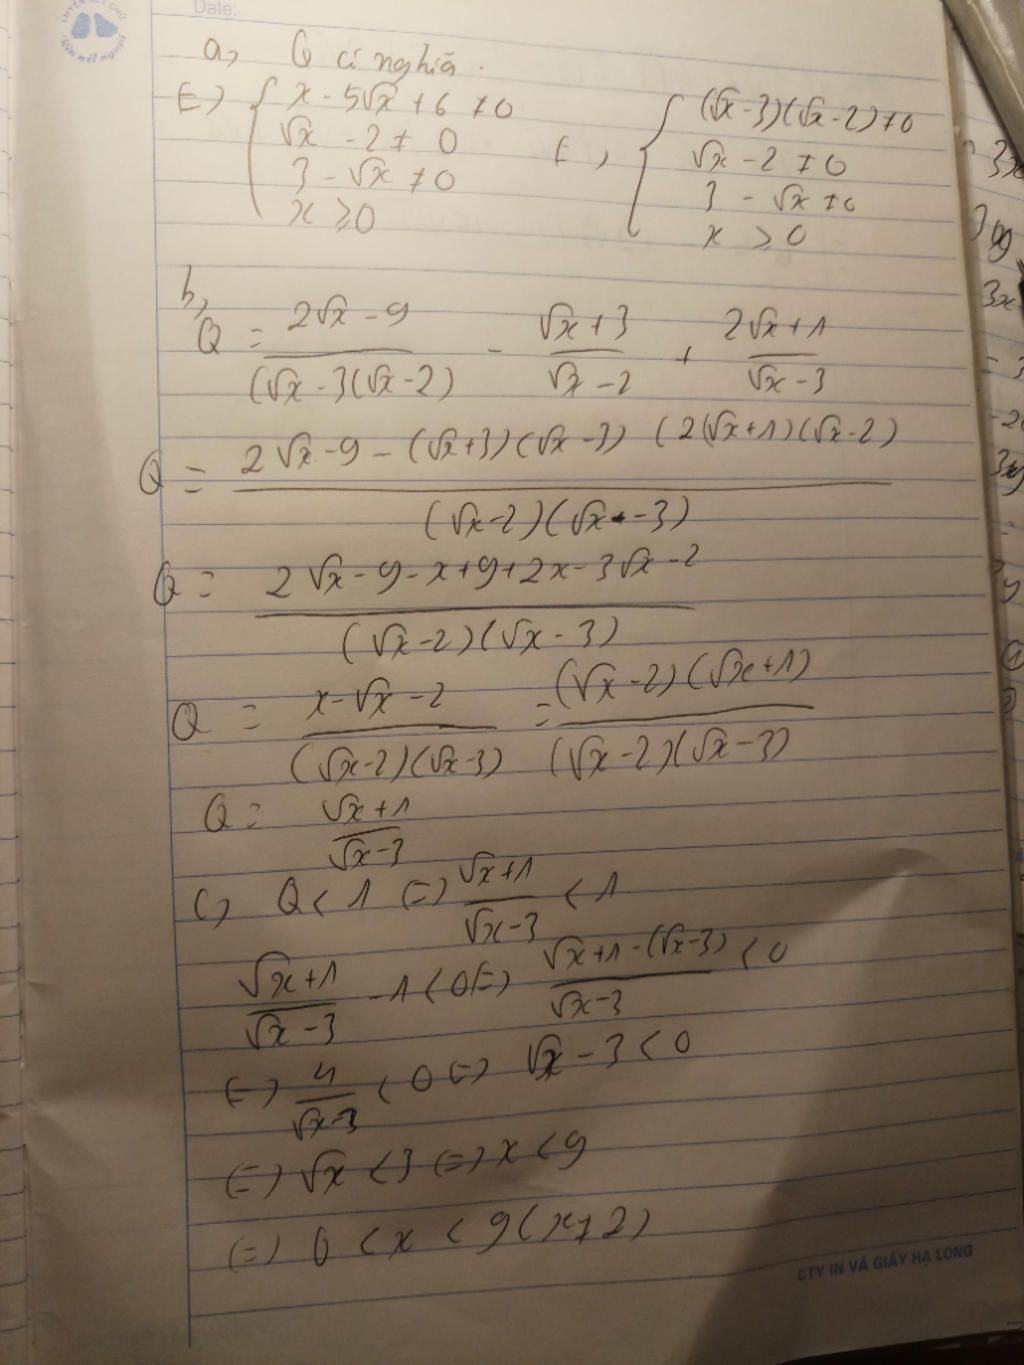 Date:
LUYỆN NÉT CHỮ
Rèn nết người
a, Q có nghĩa.
(=) { x - 5√x + 6 ≠ 0
√x - 2 ≠ 0
3 - √x ≠ 0
x ≥ 0
(=) { (√x - 3)(√x - 2) ≠ 0
√x - 2 ≠ 0
3 - √x ≠ 0
x ≥ 0
b,
Q = (2√x - 9)/((√x - 3(√x - 2)) - (√x + 3)/(√x - 2) + (2√x + 1)/(√x - 3)
Q = (2√x - 9 - (√x + 3)(√x - 3) (2(√x + 1)(√x - 2))/((√x - 2)(√x - 3))
Q = (2√x - 9 - x + 9 + 2x - 3√x - 2)/((√x - 2)(√x - 3))
Q = (x - √x - 2)/((√x - 2)(√x - 3)) = ((√x - 2)(√x + 1))/((√x - 2)(√x - 3))
Q = (√x + 1)/(√x - 3)
c, Q < 1 (=) (√x + 1)/(√x - 3) < 1
(√x + 1)/(√x - 3) - 1 < 0 (=) (√x + 1 - (√x - 3))/(√x - 3) < 0
(=) 4/(√x - 3) < 0 (=) √x - 3 < 0
(=) √x < 3 (=) x < 9
(=) 0 < x < 9 (x ≠ 2)
CTY IN VÀ GIẤY HẠ LONG